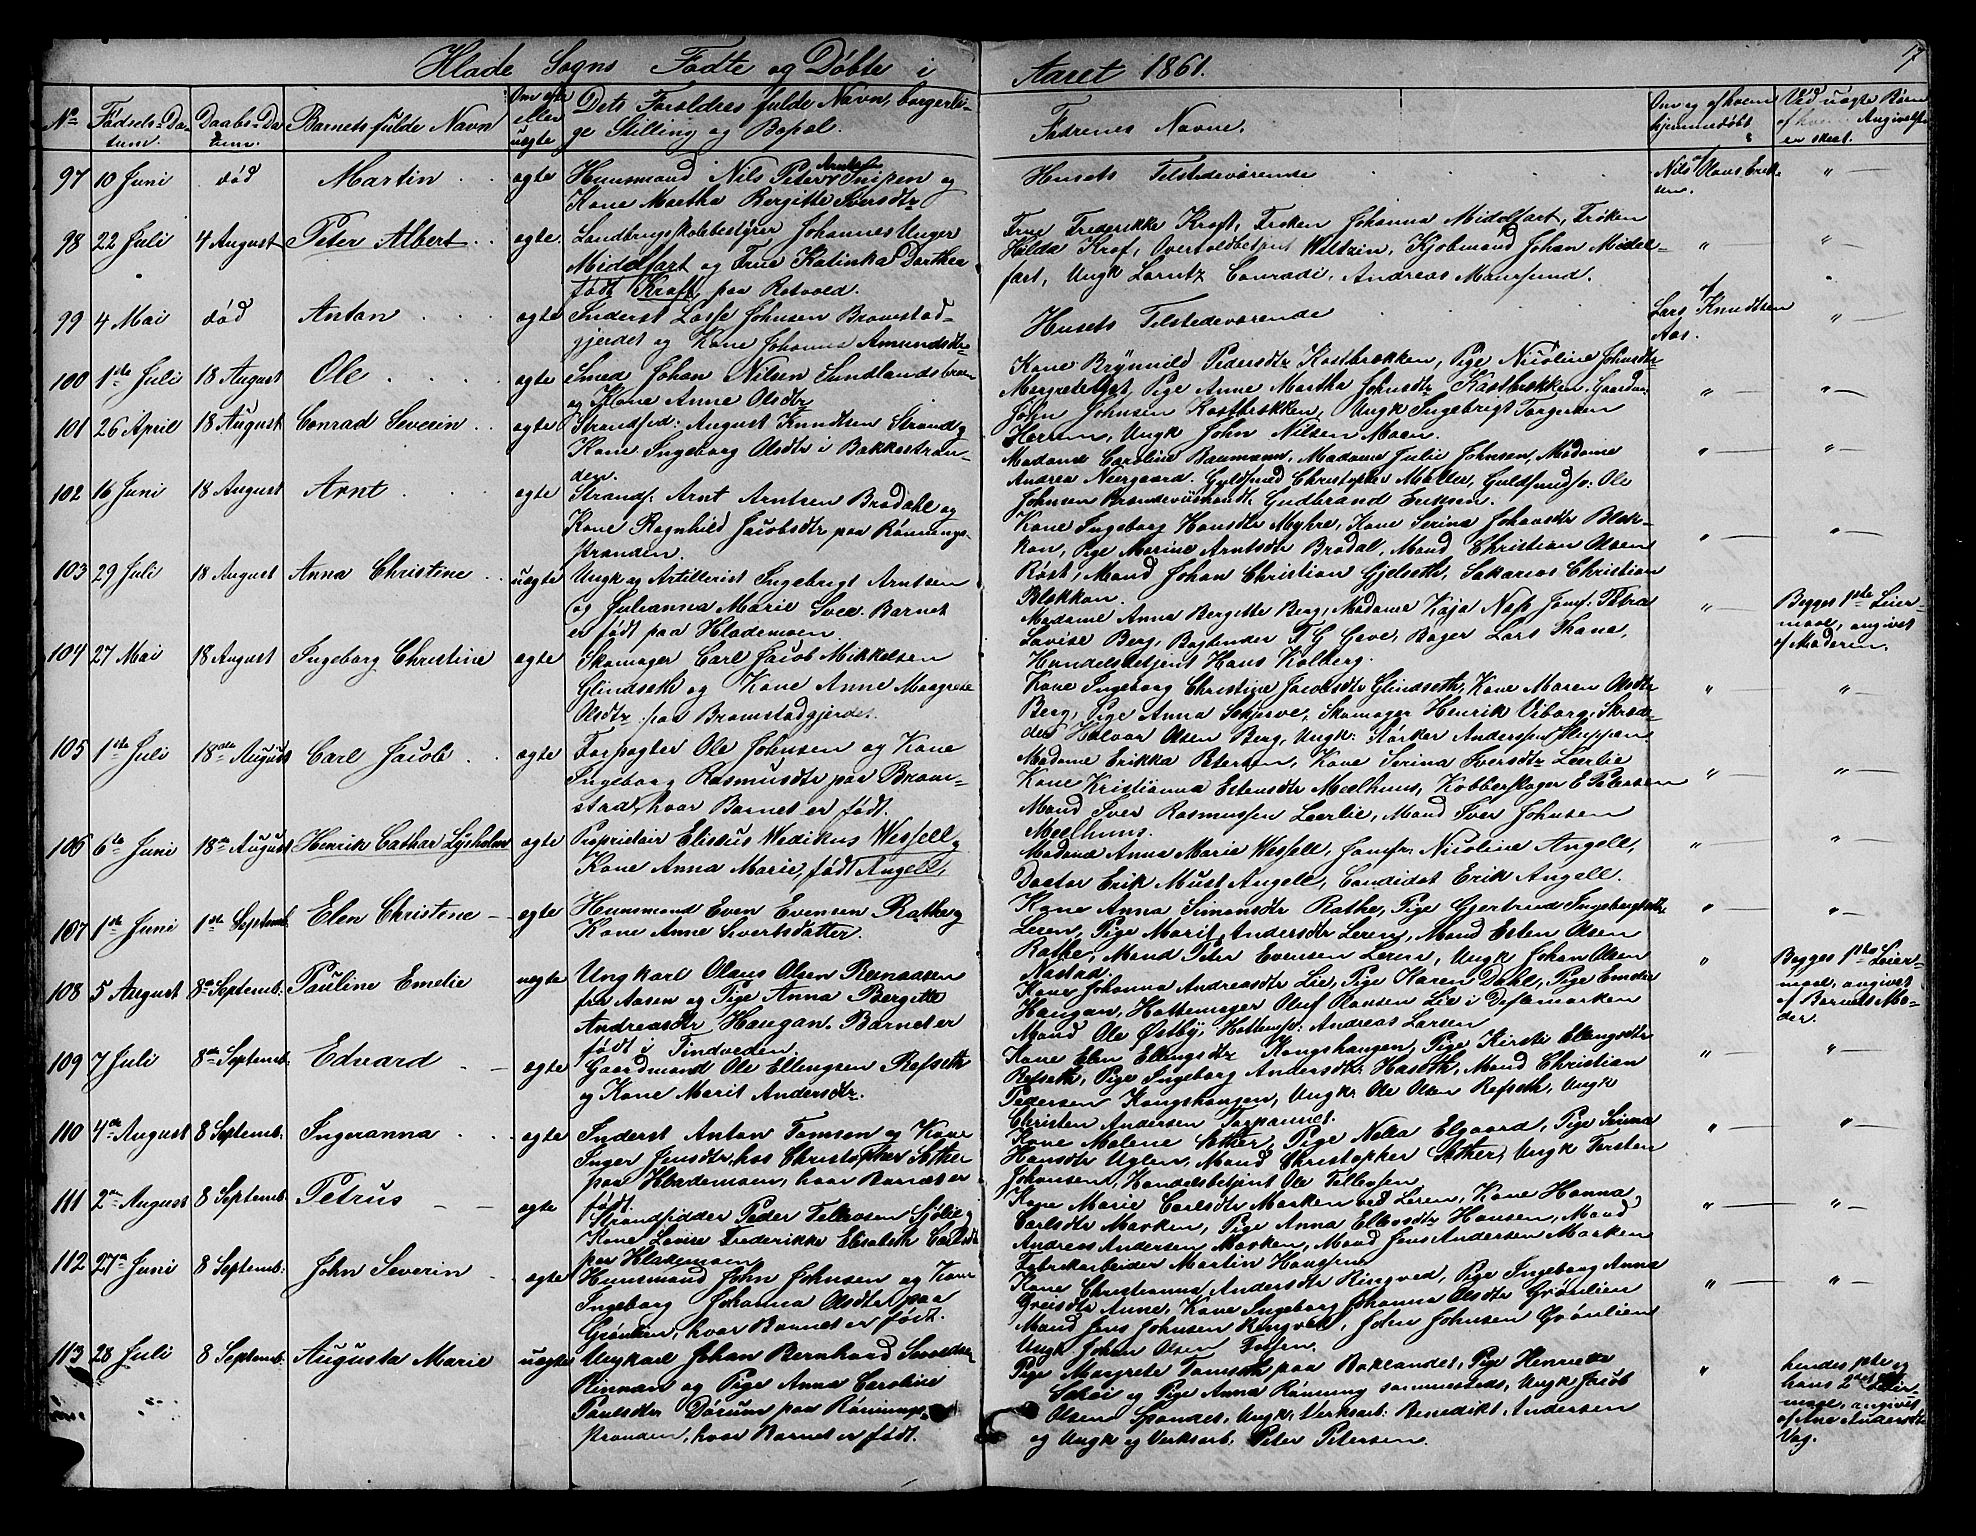 Hlade Sogns Fødte og Døbte i Aaret 1861.
17
No
Fødsels-Datum.
Daabs-Datum.
Barnets fulde Navn
Om ægte eller uægte
Dets Forældres fulde Navn, borgerlige Stilling og Bopæl.
Fadrenes Navne.
Om og af hvem hjemmedøbt
Ved uægte Børn af hvem Angivelse er skeet.
97 10 Juni død Martin ægte Huusmand Nils Peter Arntsen Snipen og
Kone Martha Bergitte Iversdtr
Husets Tilstedeværende
Nils Olaus Eriksen.
98 22 Juli 4 August Peter Albert ægte Landbrugsskolebestyrer Johannes Unger
Middelfart og Frue Katinka Dorthea
født Kraft, paa Rotvold.
Frue Frederikke Kraft, Frøken Johanna Middelfart, Frøken
Hilda Kraft, Overtoldbetjent Waltzin, Kjøbmand Johan Middelfart, Ungk Lorntz Conradi, Andreas Maursund.
99 4 Mai død Anton ægte Inderst Lasse Johnsen Bromstadgjerdet og Kone Johanna Amundsdtr
Husets Tilstedeværende
Lars Knudtsen Aas.
100 1ste Juli 18 August Ole ægte Smed Johan Nilsen Sundlandsbroen
og Kone Anne Olsdtr
Kone Brynnild Pedersdtr Kastbrekken, Pige Nicoline Johnsdtr
Pige Anne Martha Johnsdtr Kastbrekken. Gaardm.
John Johnsen Kastbrekken, Ungk Ingebrigt Torgersen
Ungk John Nilsen Moen.
101 26 April 18 August Conrad Severin ægte Strandsid: August Knudtsen Strand og
Kone Ingeborg Olsdtr i Bakkestranden.
Madame Caroline Baumann, Madame Julie Johnsen, Madame
Andrea Neergaard. Guldsmed Christopher Møller, Guldsmeds. Ole
Johnsen Gudbrand Eriksen.
102 16 Juni 18 August Arnt ægte Strands. Arnt Arntsen Brødahl og
Kone Ragnhild Jacobsdtr paa Rønningsstranden.
Kone Ingeborg Hansdtr Myhre, Kone Serina Johansdtr Blekkan, Pige Marine Arntsdtr Brødal, Mand Christian Olsen
Røst, Mand Johan Christian Gjelseth, Sakarias Christian
Blekkan.
103 29 Juli 18 August Anna Christine uægte Ungk og Artillerist Ingebrigt Arntsen
og Julianna Marie Svea. Barnet
er født paa Hlademoen.
Madame Anna Bergitte Berg, Madame Kaja Næss, Jomf: Petra
Lovise Berg, Bogbinder F G Geve, Bager Lars Thane,
Handelsbetjent Hans Kolberg.
Begges 1ste Leiermaal, angivet
af Moderen.
104 27 Mai 18 August Ingeborg Christine ægte Skomager Carl Jacob Mikkelsen
Glindseth og Kone Anne Margrete
Olsdtr paa Bromstadgjerdet.
Kone Ingeborg Christine Jacobsdtr Glindseth, Kone Maren Olsdtr
Berg, Pige Anna Skjerve, Skomager Henrik Viborg, Skræder Halvor Olsen Berg, Ungk: Størker Anderssen Sluppen.
105 1ste Juli 18de August Carl Jacob ægte Forpagter Ole Johnsen og Kone
Ingeborg Rasmusdtr paa Bromstad, hvor Barnet er født.
Madame Erikka Petersen, Kone Serina Iversdtr Leerlie
Kone Kristianna Estensdtr Meelhuus, Kobberslager E Petersen
Mand Iver Rasmussen Leerlie, Mand Iver Johnsen
Meelhuus.
106 6te Juni 18de August Henrik Cathar Lysholm ægte Proprietair Elissus Wedikus Wessell og
Kone Anna Marie, født Angell,
Madame Anna Marie Wessell, Jomfr: Nicoline Angell,
Doctor Erik Must Angell, Candidat Erik Angell.
107 1ste Juni 1ste Septemb. Elen Christine ægte Huusmand Even Evensen Rathe og
Kone Anne Sivertsdatter.
Kone Anna Simonsdtr Rathe, Pige Gjertrud Ingebrigtsdtr
Leren, Pige Marit Andersdtr Leren, Mand Esten Olsen
Rathe, Mand Peter Evensen Leren, Ungk Johan Olsen
Nastad.
108 5 August 8de Septemb: Pauline Emelie uægte Ungkarl Olaus Olsen Remaasen
fra Aasen og Pige Anna Bergitte
Andreasdtr Haugan. Barnet er
født i Tindveden
Kone Johanna Andreasdtr Lie, Pige Karen Dahl, Pige Emelie
Haugan, Hattemager Oluf Hansen Lie i Dessemarken
Mand Ole Østby, Hattems: Andreas Larsen
Begges 1ste Leiermaal, angivet
af Barnets Moder.
109 7 Juli 8de Septemb: Edvard ægte Gaardmand Ole Ellingsen Refseth
og Kone Marit Andersdtr.
Kone Elen Ellingsdtr Kongshaugen, Pige Kirsti Ellingsdtr
Refseth, Pige Ingeborg Andersdtr Haseth, Mand Christian
Pedersen Kongshaugen, Ungk: Ole Olsen Refseth, Ungk
Christen Andersen Torpannet.
110 4de August 8 Septemb: Ingeranna ægte Inderst Anton Tomsen og Kone
Inger Jensdtr, hos Christopher Sæther
paa Hlademoen, hvor Barnet er
født.
Kone Malene Sæther, Pige Nella Elgaard, Pige Serina
Hansdtr Uglen, Mand Christopher Sæther, Ungk Torsten
Johansen, Handelsbetjent Ole Tellefsen
111 2den August 8 Septemb. Petrus ægte Strandsidder Peder Tellevsen Sjølie og
Kone Lovise Frederikke Elisabeth Carlsdtr
paa Hlademoen
Kone Marie Carlsdtr Marken ved Leren, Kone Hanna
Carlsdtr Marken, Pige Anna Ellevsdtr Hansen, Mand
Andreas Andersen Marken, Mand Jens Andersen Marken
Fabrikarbeider Martin Hansen
112 27de Juni 8 Septemb: John Severin ægte Huusmand John Johnsen og Kone
Ingeborg Johanna Olsdtr paa
Grønlien, hvor Barnet er født.
Kone Christianna Andersdtr Ringved, Pige Ingeborg Anna
Greisdtr Anne, Kone Ingeborg Johanna Olsdtr Grønlien
Mand Jens Johnsen Ringved, John Johnsen Grønlien
Ungk Johan Olsen
113 28 Juli 8 Septemb. Augusta Marie uægte Ungkarl Johan Bernhard
Rinnan og Pige Anna Caroline
Paulsdtr Dørum paa Rønningsstranden, hvor Barnet er født.
Pige Margrete Tomseth paa Baklandet, Pige Henriette
og Pige Anna Rønning sammesteds, Ungk Jacob
Olsen Spondes, Ungk. Verksarb: Benedikt Andersen
og Ungk og Verksarb: Peter Petersen.
hendes 1ste og
hans 2det Leiermaal, angivet
af Ane Andersdtr
Vag.